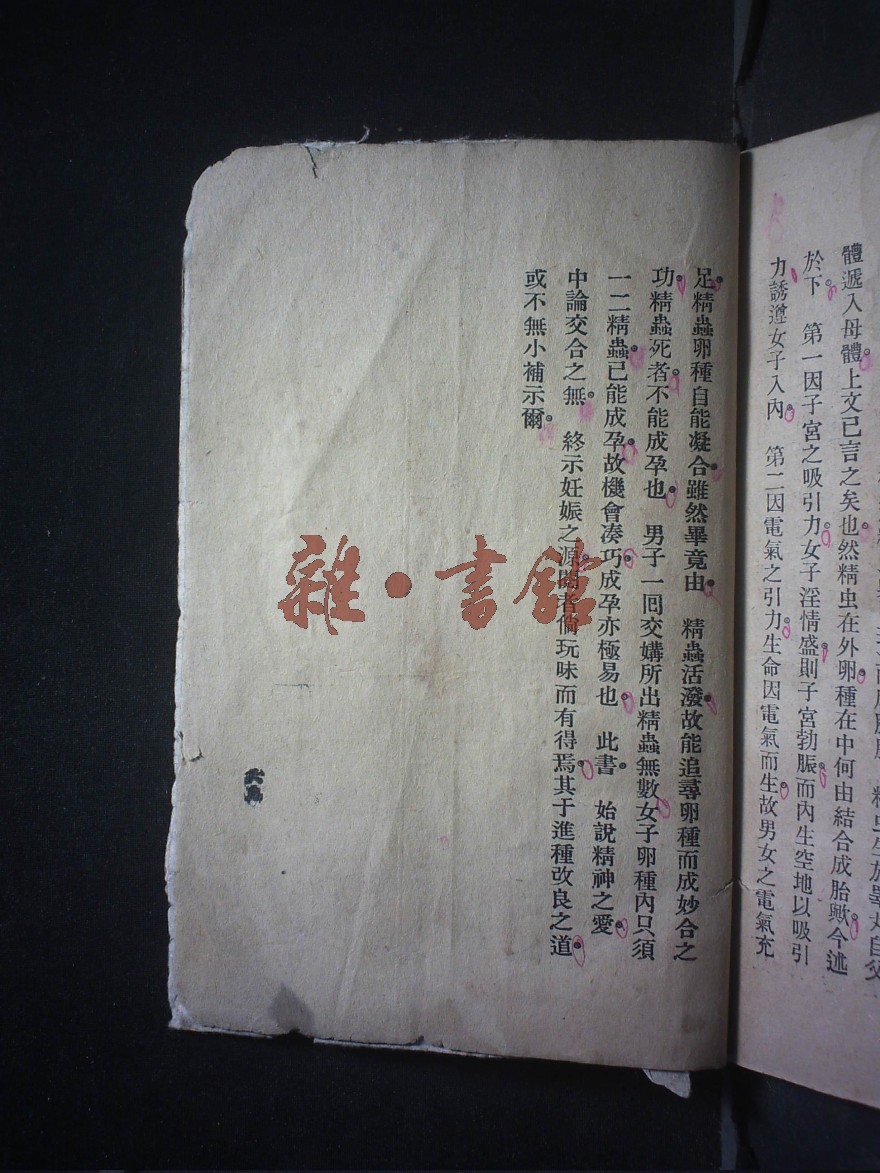 體遞入母體。上文已言之矣也然精虫在外。卵種在中。何由結合成胎歟。今述
於下。 第一因子宮之吸引力。女子淫情盛。則子宮勃脹。而內生空地以吸引
力誘遵女子入內。 第二因電氣之引力。生命因電氣而生。故男女之電氣充
足。精蟲卵種自能凝合。雖然畢竟由。 精蟲活潑。故能追尋卵種而成妙合之
功。精蟲死者。不能成孕也。 男子一回交媾所出精蟲無數。女子卵種內只須
一二精蟲。已能成孕。故機會凑巧。成孕亦極易也。 此書。 始說精神之愛。
中論交合之無。 終示妊娠之源。閱者倘玩味而有得焉。其于進種改良之道。
或不無小補示爾。
雜·書館